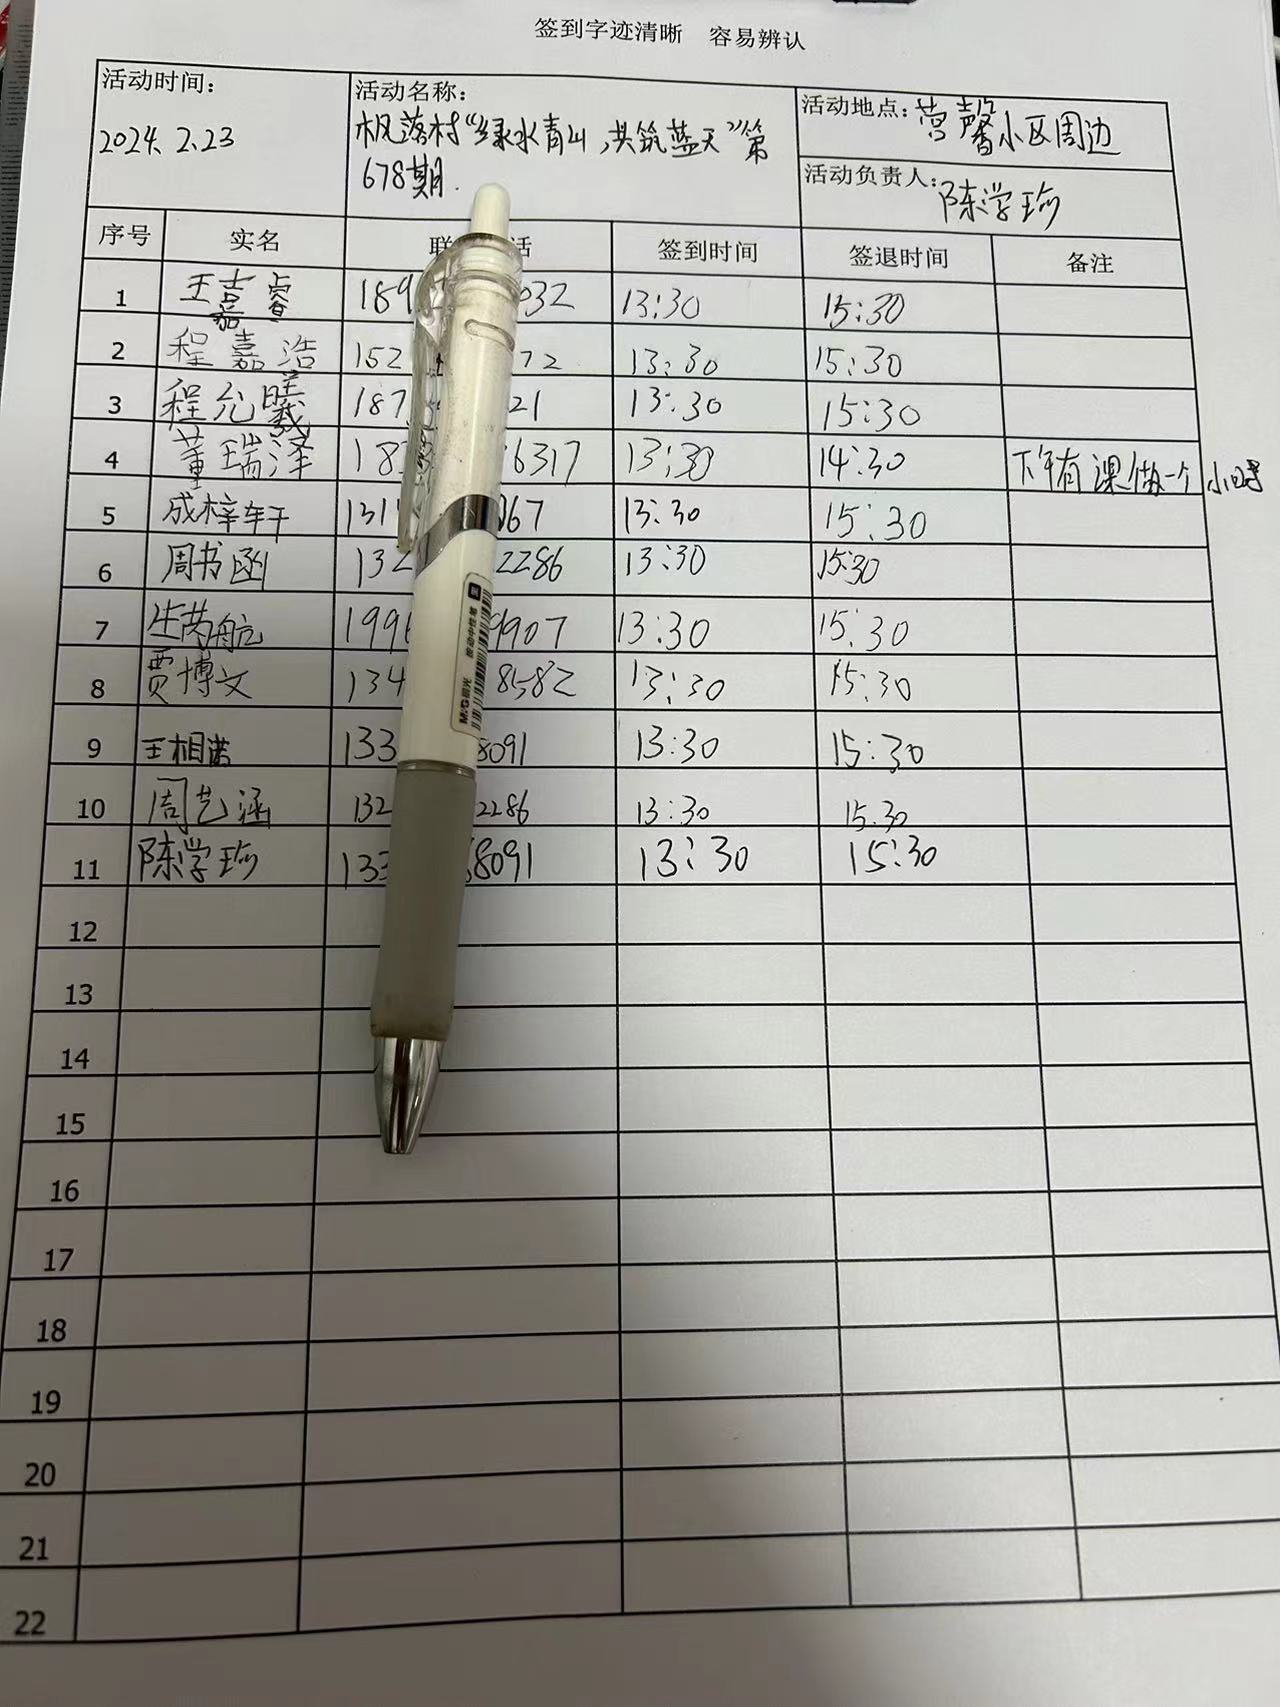 签到字迹清晰 容易辨认
活动时间： 活动名称： 活动地点：营馨小区周边
2024.2.23 枫落村“绿水青山，共筑蓝天”第
678期. 活动负责人：陈学瑜
序号 实名 联 话 签到时间 签退时间 备注
1 王嘉睿 189 032 13:30 15:30
2 程嘉浩 152 72 13:30 15:30
3 程允曦 187 21 13:30 15:30
4 董瑞泽 18 6317 13:30 14:30 下午有课做一个小时
5 成梓轩 131 067 13:30 15:30
6 周书函 132 2286 13:30 15:30
7 航 199 9907 13:30 15:30
8 贾博文 134 8582 13:30 15:30
9 王相 133 8091 13:30 15:30
10 周艺涵 132 2286 13:30 15.30
11 陈学瑜 133 8091 13:30 15:30
12
13
14
15
16
17
18
19
20
21
22
M&G晨光 按动中性笔 黑